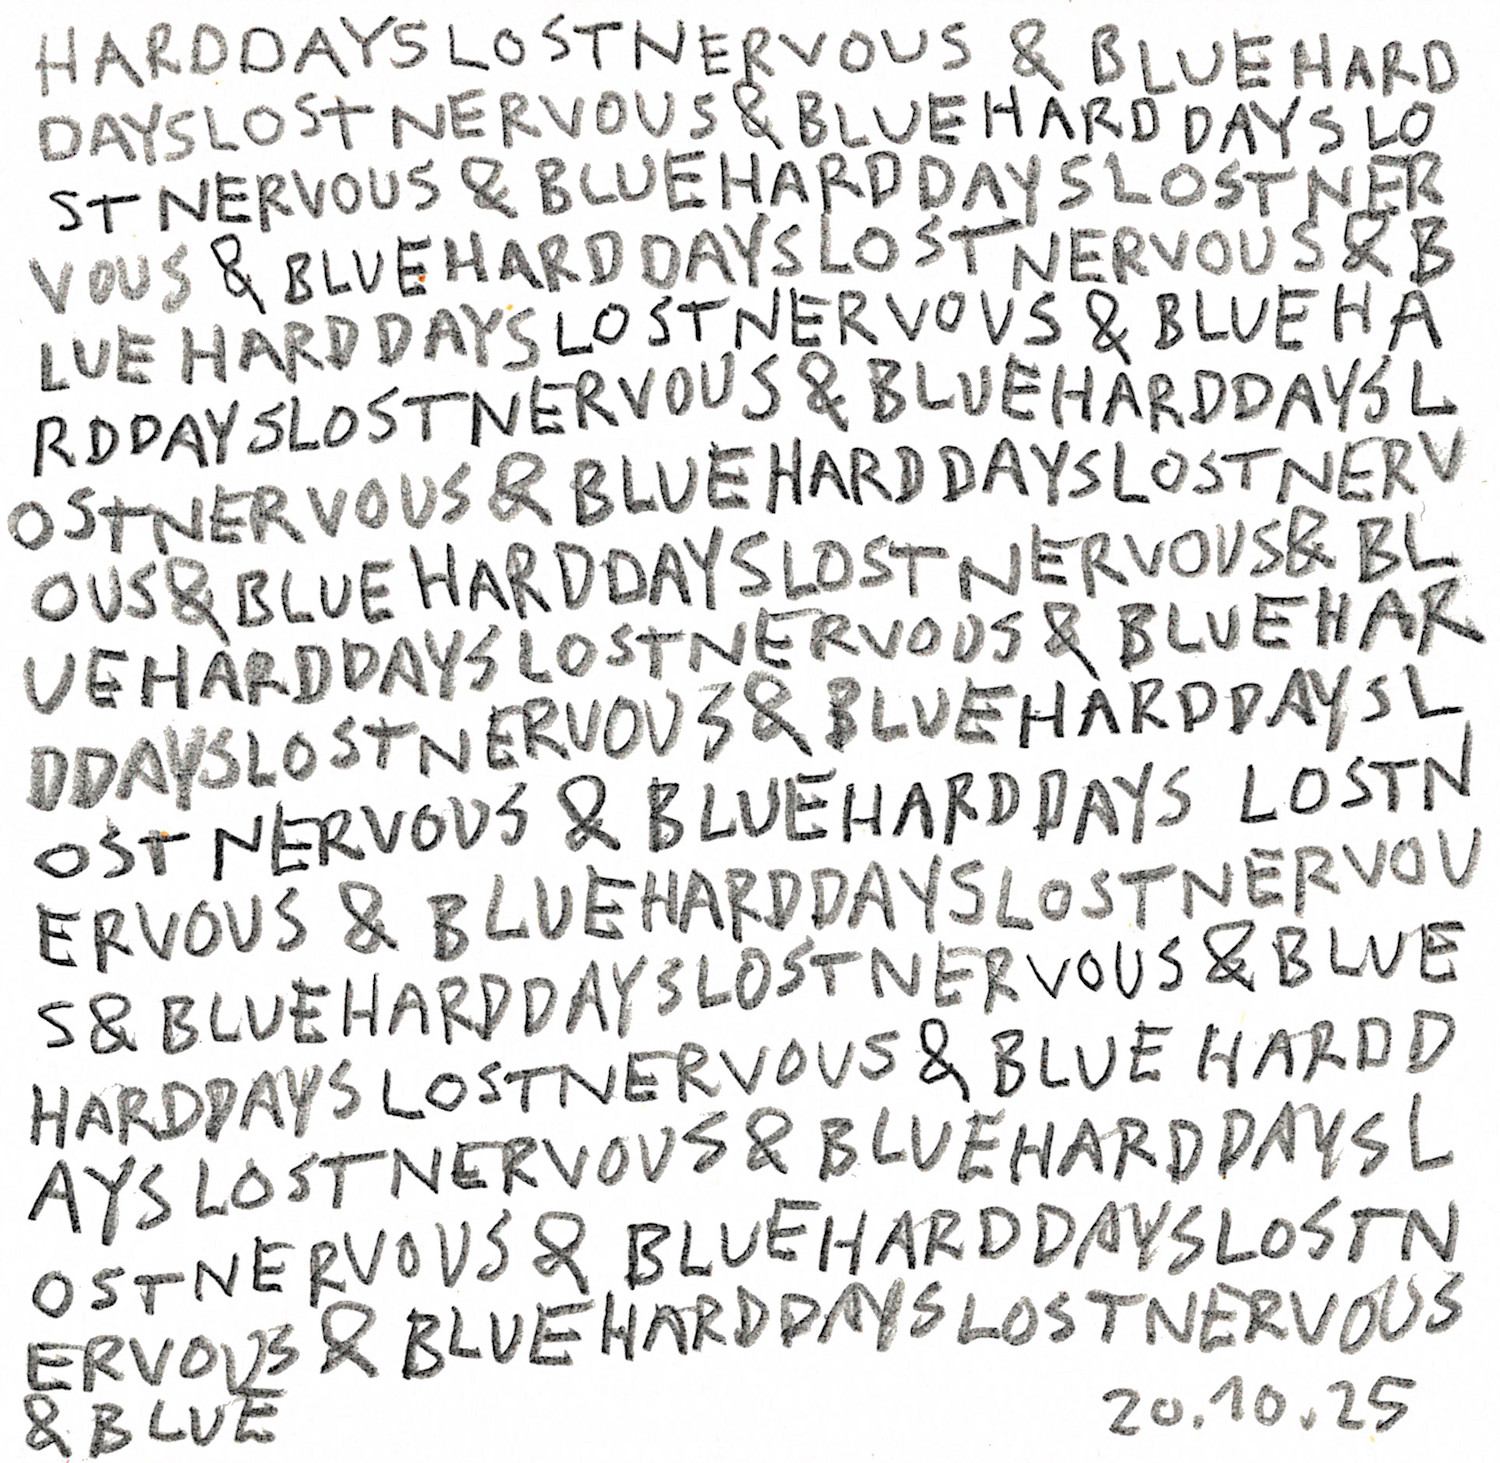 HARDDAYSLOSTNERVOUS & BLUEHARD
DAYSLOSTNERVOUS&BLUEHARDDAYSLO
STNERVOUS & BLUEHARDDAYSLOSTNER
VOUS & BLUEHARDDAYSLOSTNERVOUS&B
LUE HARDDAYSLOSTNERVOUS & BLUEHA
RDDAYSLOSTNERVOUS&BLUEHARDDAYSL
OSTNERVOUS&BLUEHARDDAYSLOSTNERV
OUS&BLUE HARDDAYSLOSTNERVOUS&BL
UEHARDDAYSLOSTNERVOUS & BLUEHAR
DDAYSLOSTNERVOUS&BLUEHARDDAYSL
OST NERVOUS & BLUEHARDDAYS LOSTN
ERVOUS & BLUEHARDDAYSLOSTNERVOU
S&BLUEHARDDAYSLOSTNERVOUS&BLUE
HARDDAYS LOSTNERVOUS & BLUE HARDD
AYSLOSTNERVOUS&BLUEHARDDAYSL
OSTNERVOUS & BLUEHARDDAYSLOSTN
ERVOUS & BLUEHARDDAYSLOSTNERVOUS
& BLUE
20.10.25